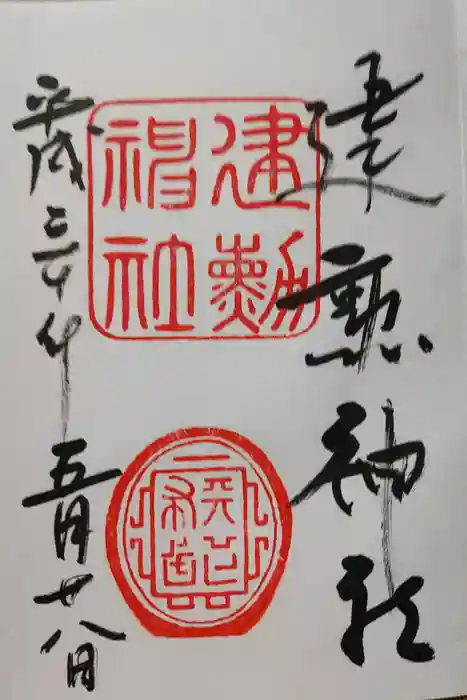 建勲神社
建勲
神社
天下
布武
平成三十年五月廿八日